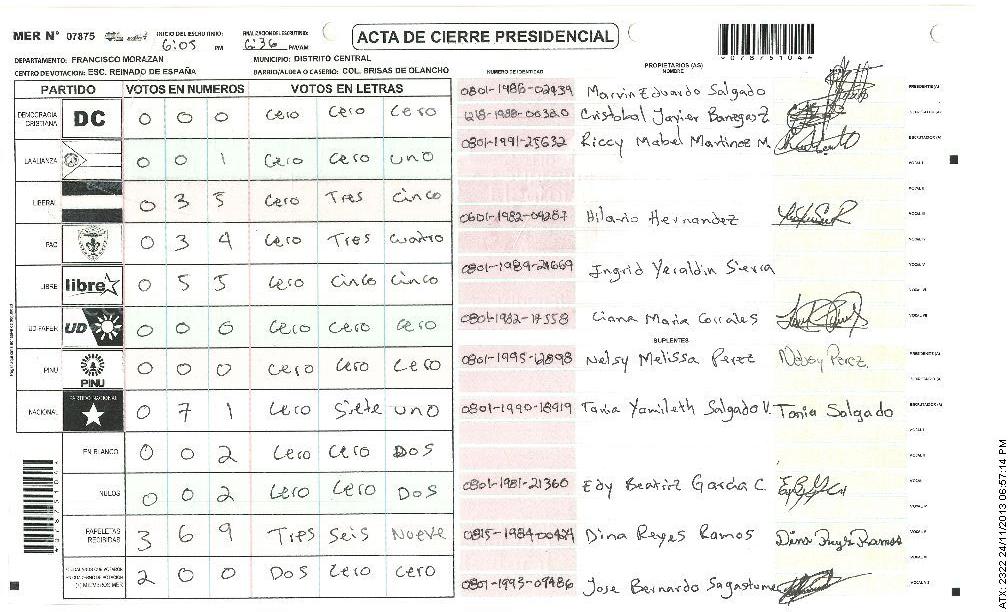 MER N° 07875 INICIO DEL ESCRUTINIO: 6:05 PM FINALIZACION DEL ESCRUTINIO: 6:36 PM/AM
ACTA DE CIERRE PRESIDENCIAL
DEPARTAMENTO: FRANCISCO MORAZAN MUNICIPIO: DISTRITO CENTRAL
CENTRO DE VOTACION: ESC. REINADO DE ESPAÑA BARRIO/ALDEA O CASERIO: COL. BRISAS DE OLANCHO
PARTIDO VOTOS EN NUMEROS VOTOS EN LETRAS
DEMOCRACIA CRISTIANA DC 0 0 0 Cero Cero Cero
LA ALIANZA 0 0 1 Cero Cero uno
LIBERAL 0 3 5 Cero Tres Cinco
PAC 0 3 4 Cero Tres Cuatro
LIBRE libre 0 5 5 Cero Cinco Cinco
UD-FAPER UD 0 0 0 Cero Cero Cero
PINU PINU 0 0 0 Cero Cero Cero
NACIONAL PARTIDO NACIONAL 0 7 1 Cero Siete uno
EN BLANCO 0 0 2 Cero Cero Dos
NULOS 0 0 2 Cero Cero Dos
PAPELETAS RECIBIDAS 3 6 9 Tres Seis Nueve
2 0 0 Dos Cero Cero
NUMERO DE IDENTIDAD PROPIETARIOS (AS) NOMBRE
0801-1986-02439 Marvin Eduardo Salgado PRESIDENTE(A)
Cristobal Javier Banegas Z
0801-1991-25632 Riccy Mabel Martinez M. ESCRUTADOR(A)
0601-1982-04287 Hilario Hernandez
0801-1989-21669 Ingrid Yeraldin Sierra
0801-1982-17558 Liana Maria Corrales
SUPLENTES
0801-1995-12898 Nelsy Melissa Perez Nelsy Perez PRESIDENTE(A)
0801-1990-18919 Tania Yamileth Salgado V. Tania Salgado ESCRUTADOR(A)
0801-1981-21360 Edy Beatriz Garcia C.
0815-1984-00424 Dina Reyes Ramos Dina Reyes Ramos
0801-1993-09486 Jose Bernardo Sagastume
ATX-2222 24/11/2013 06:57:14 PM